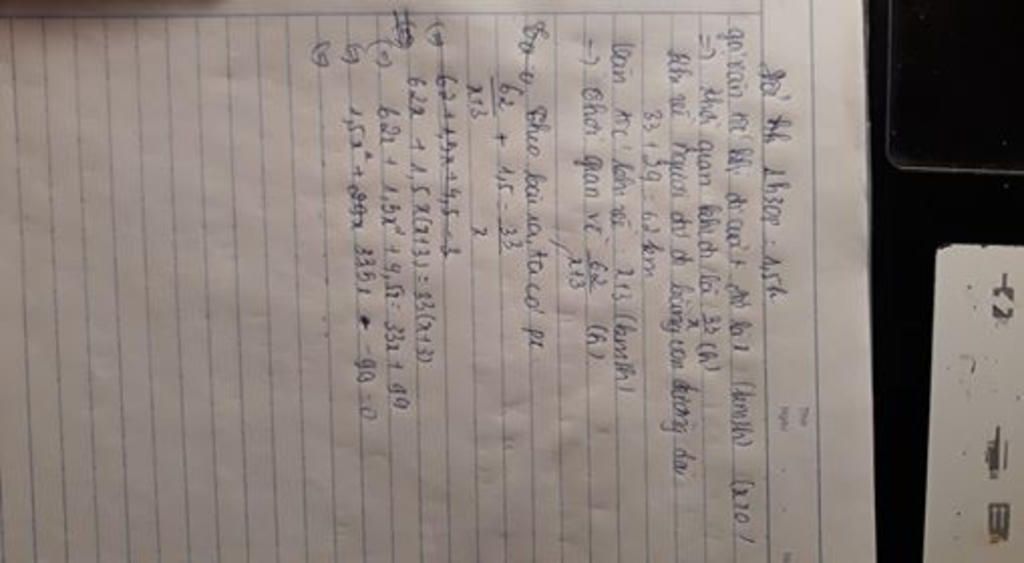 Thứ
Ngày
Đổi 1h30p = 1,5h
gọi vận tốc khi đi của + đó là x (km/h) (x>0)
=) thời gian khi đi là 33/x (h)
khi về người đó đi bằng con đường dài
33 + 29 = 62 km
Vận tốc khi về x+3 (km/h)
-) thời gian về 62/x+3 (h)
theo bài ra, ta có pt
62/x+3 + 1,5 = 33/x
62x + 1,5x(x+3) = 33(x+3)
(=) 62x + 1,5x² + 4,5x = 33x + 99
(=) 1,5x² + 33,5x - 99 = 0
(=)